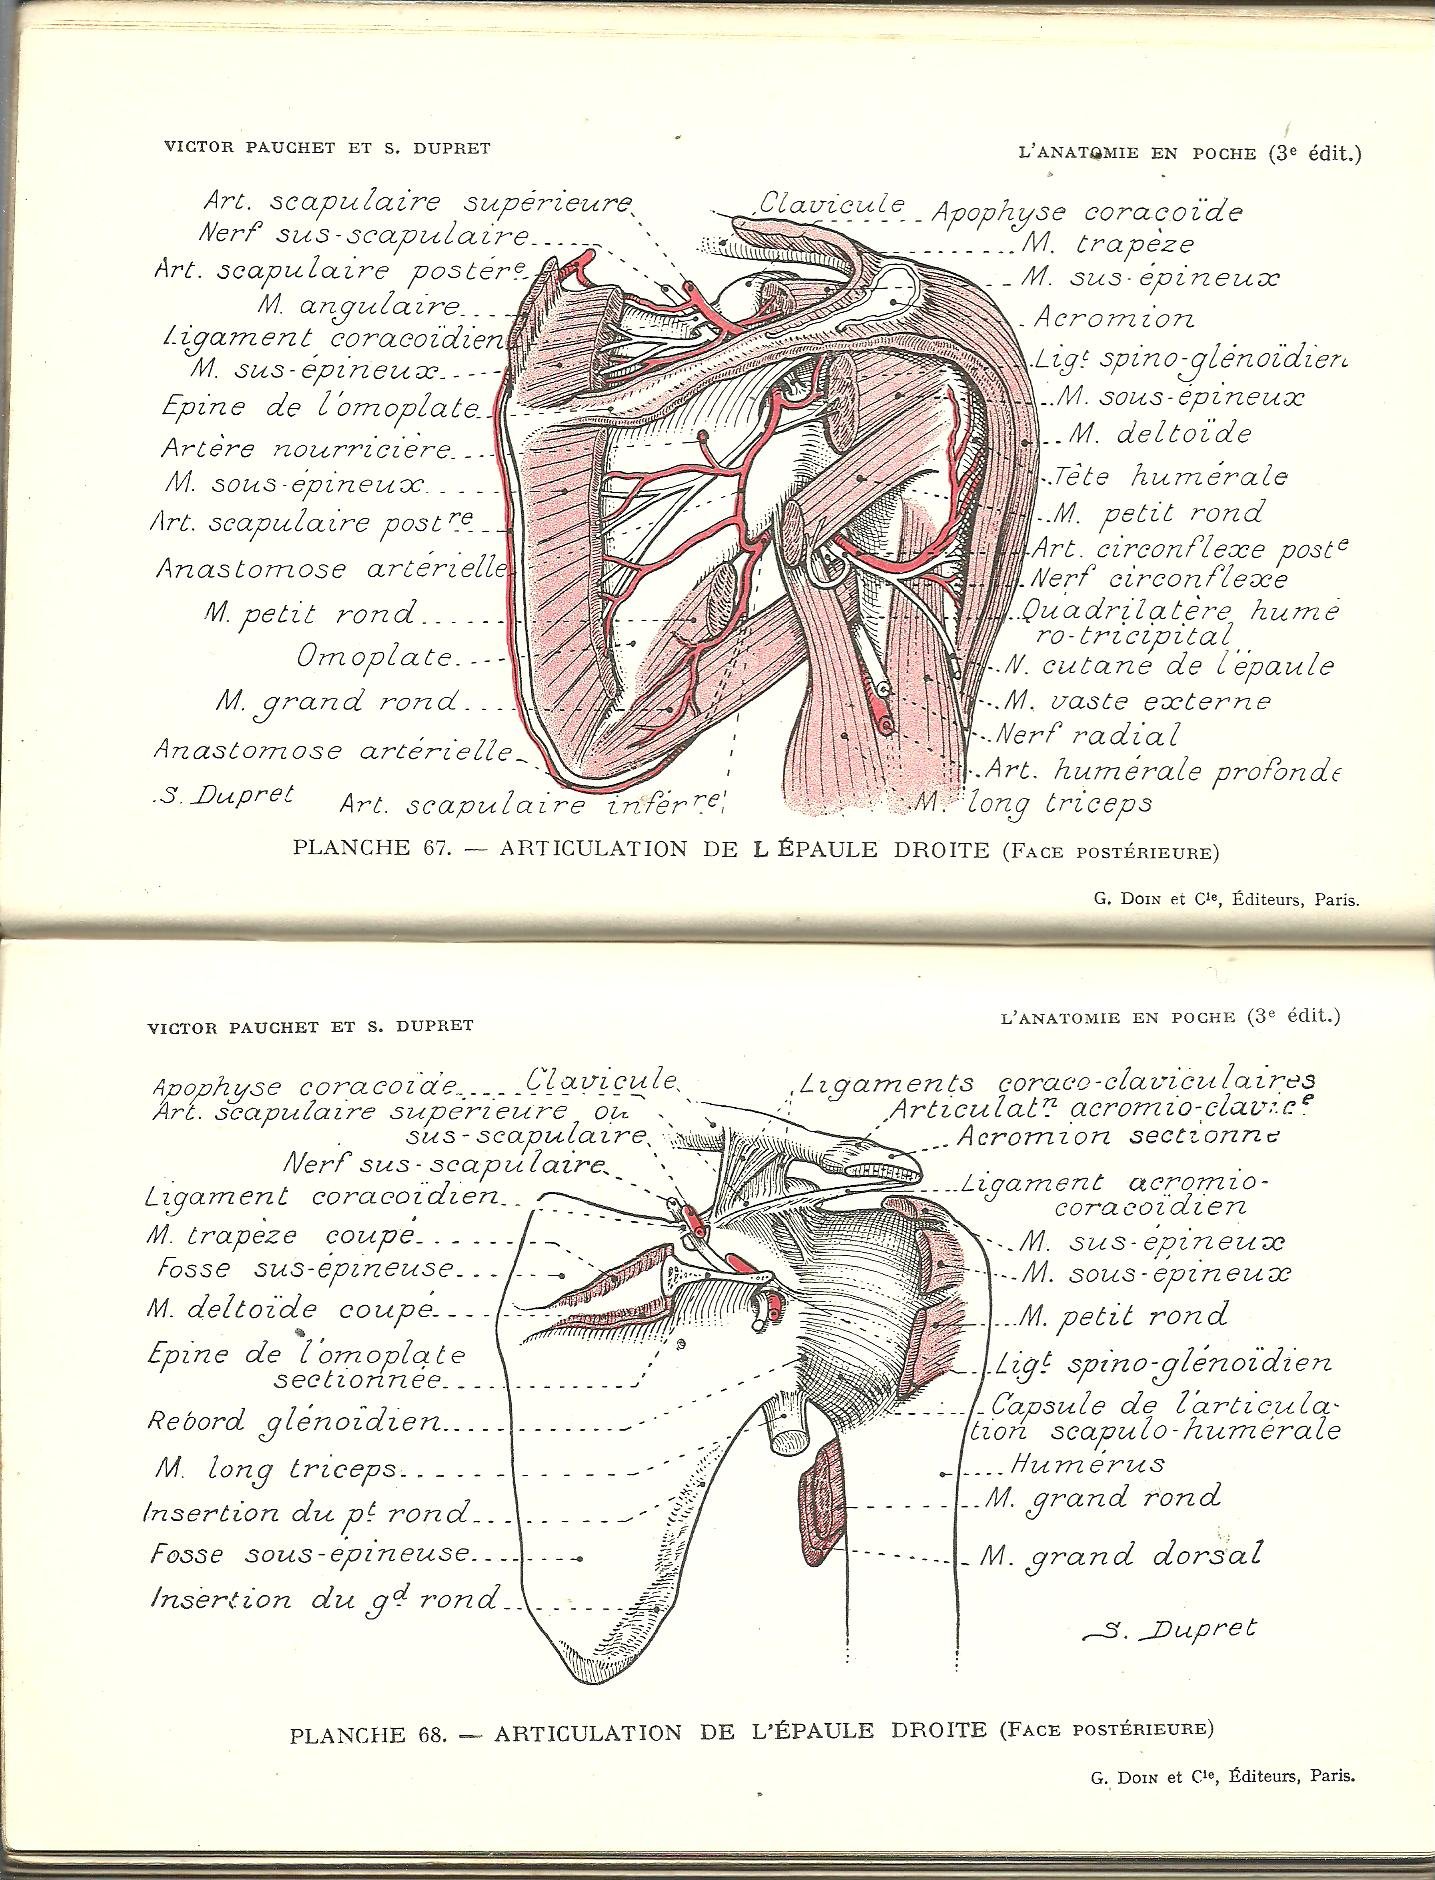 VICTOR PAUCHET ET S. DUPRET
L'ANATOMIE EN POCHE (3e édit.)
Art. scapulaire supérieure
Nerf sus-scapulaire
Art. scapulaire postére
M. angulaire
Ligament coracoïdien
M. sus-épineux
Epine de l'omoplate
Artère nourricière
M. sous-épineux
Art. scapulaire postre
Anastomose artérielle
M. petit rond
Omoplate
M. grand rond
Anastomose artérielle
S. Dupret
Art. scapulaire inférre
Clavicule
Apophyse coracoïde
M. trapèze
M. sus-épineux
Acromion
Ligt spino-glénoïdien
M. sous-épineux
M. deltoïde
Tête humérale
M. petit rond
Art. circonflexe poste
Nerf circonflexe
Quadrilatère humé
ro-tricipital
N. cutané de l'épaule
M. vaste externe
Nerf radial
Art. humérale profonde
M. long triceps
PLANCHE 67. — ARTICULATION DE L ÉPAULE DROITE (FACE POSTÉRIEURE)
G. DOIN et Cie, Éditeurs, Paris.
VICTOR PAUCHET ET S. DUPRET
L'ANATOMIE EN POCHE (3e édit.)
Apophyse coracoïde
Clavicule
Art. scapulaire supérieure ou
sus-scapulaire
Nerf sus-scapulaire
Ligament coracoïdien
M. trapèze coupé
Fosse sus-épineuse
M. deltoïde coupé
Epine de l'omoplate
sectionnée
Rebord glénoïdien
M. long triceps
Insertion du pt rond
Fosse sous-épineuse
Insertion du gd rond
Ligaments coraco-claviculaires
Articulatn acromio-clavice
Acromion sectionné
Ligament acromio-
coracoïdien
M. sus-épineux
M. sous-épineux
M. petit rond
Ligt spino-glénoïdien
Capsule de l'articula-
tion scapulo-humérale
Humérus
M. grand rond
M. grand dorsal
S. Dupret
PLANCHE 68. — ARTICULATION DE L'ÉPAULE DROITE (FACE POSTÉRIEURE)
G. DOIN et Cie, Éditeurs, Paris.